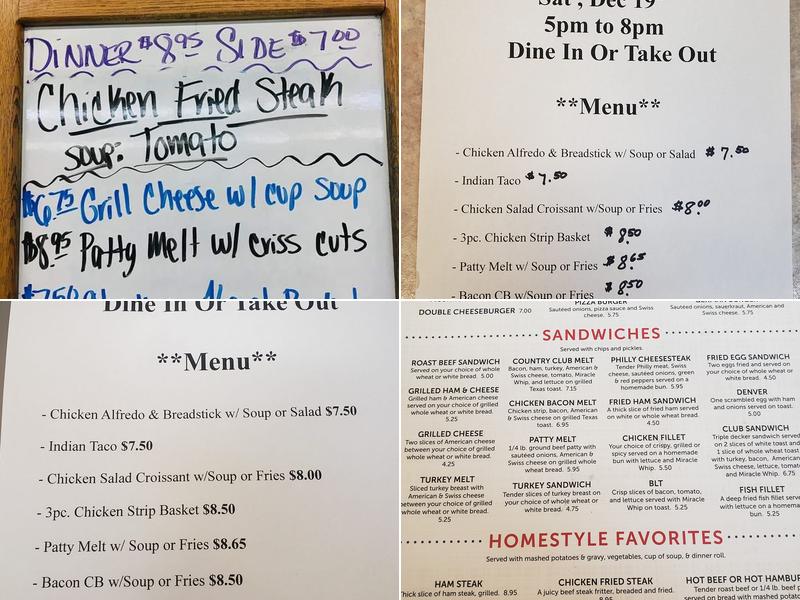 DINNER $8.95 SIDE $7.00
Chicken Fried Steak
soup: Tomato
$6.75 Grill Cheese w/ cup soup
$8.95 Patty Melt w/ criss cuts
Sat, Dec 19
5pm to 8pm
Dine In Or Take Out
**Menu**
- Chicken Alfredo & Breadstick w/ Soup or Salad $7.50
- Indian Taco $7.50
- Chicken Salad Croissant w/Soup or Fries $8.00
- 3pc. Chicken Strip Basket $8.50
- Patty Melt w/ Soup or Fries $8.65
- Bacon CB w/Soup or Fries $8.50
Dine In Or Take Out
**Menu**
- Chicken Alfredo & Breadstick w/ Soup or Salad $7.50
- Indian Taco $7.50
- Chicken Salad Croissant w/Soup or Fries $8.00
- 3pc. Chicken Strip Basket $8.50
- Patty Melt w/ Soup or Fries $8.65
- Bacon CB w/Soup or Fries $8.50
DOUBLE CHEESEBURGER 7.00
PIZZA BURGER
Sautéed onions, pizza sauce and Swiss
cheese. 5.75
Sautéed onions, sauerkraut, American and
Swiss cheese. 5.75
SANDWICHES
Served with chips and pickles.
ROAST BEEF SANDWICH
Served on your choice of whole
wheat or white bread. 5.00
GRILLED HAM & CHEESE
Grilled ham & American cheese
served on your choice of grilled
whole wheat or white bread.
5.25
GRILLED CHEESE
Two slices of American cheese
between your choice of grilled
whole wheat or white bread.
4.25
TURKEY MELT
Sliced turkey breast with
American & Swiss cheese
between your choice of grilled
whole wheat or white bread.
5.25
COUNTRY CLUB MELT
Bacon, ham, turkey, American &
Swiss cheese, tomato, Miracle
Whip, and lettuce on grilled
Texas toast. 7.15
CHICKEN BACON MELT
Chicken strip, bacon, American
& Swiss cheese on grilled Texas
toast. 6.95
PATTY MELT
1/4 lb. ground beef patty with
sautéed onions, American &
Swiss cheese on grilled whole
wheat bread. 5.95
TURKEY SANDWICH
Tender slices of turkey breast on
your choice of whole wheat or
white bread. 4.75
PHILLY CHEESESTEAK
Tender Philly meat, Swiss
cheese, sautéed onions, green
& red peppers served on a
homemade bun. 5.95
FRIED HAM SANDWICH
A thick slice of fried ham served
on white or whole wheat bread.
4.50
CHICKEN FILLET
Your choice of crispy, grilled or
spicy served on a homemade
bun with lettuce and Miracle
Whip. 5.50
BLT
Crisp slices of bacon, tomato,
and lettuce served with Miracle
Whip on toast. 5.25
FRIED EGG SANDWICH
Two eggs fried and served on
your choice of whole wheat or
white bread. 4.50
DENVER
One scrambled egg with ham
and onions served on toast.
5.00
CLUB SANDWICH
Triple decker sandwich served
on 2 slices of white toast and
1 slice of whole wheat toast
with turkey, bacon, American
Swiss cheese, lettuce, tomato
and Miracle Whip. 6.75
FISH FILLET
A deep fried fish fillet served
with lettuce on a homemade
bun. 5.25
HOMESTYLE FAVORITES
Served with mashed potatoes & gravy, vegetables, cup of soup, & dinner roll.
HAM STEAK
Thick slice of ham steak, grilled. 8.95
CHICKEN FRIED STEAK
A juicy beef steak fritter, breaded and fried.
8.95
HOT BEEF OR HOT HAMBUR
Tender roast beef or 1/4 lb. beef p
served on bread with mashed potatoes